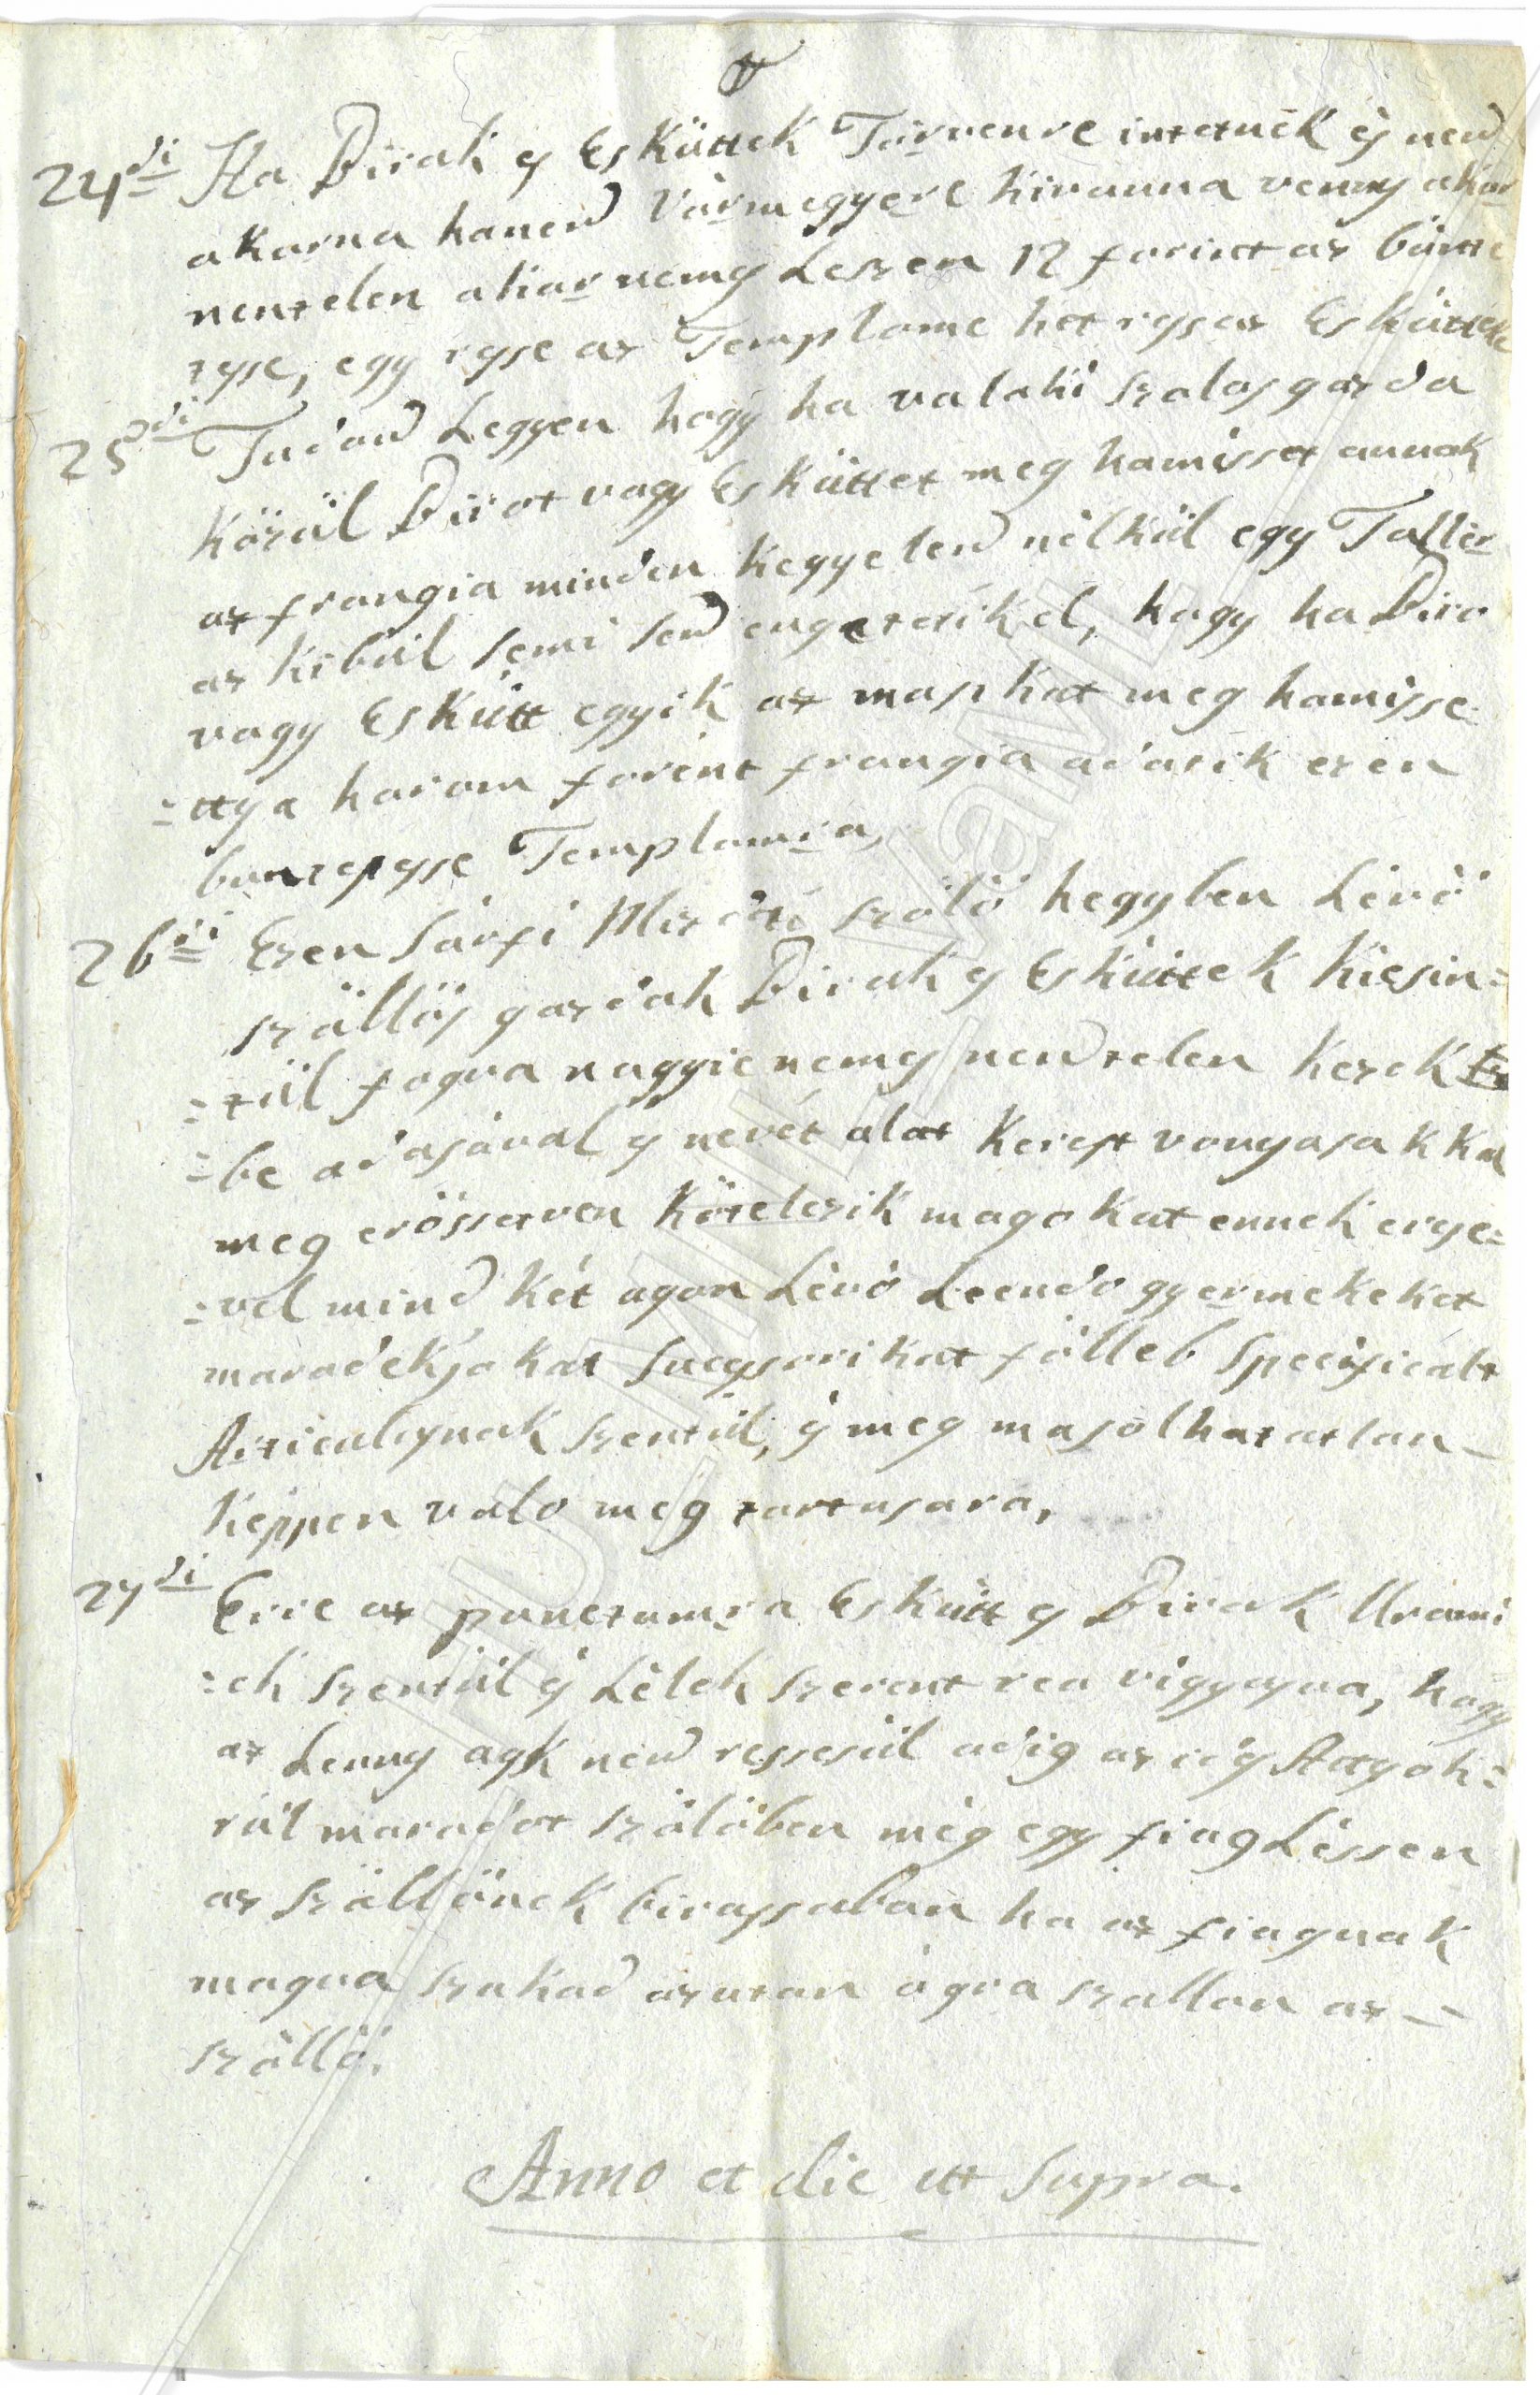 24di Ha Birak es Esküttek Törvenre intetnék és nem
akarna hanem Vármegyere kivanna venny akar
nemtelen akar nemes Leszen 12 forint az bünte
tese, egy resze az Templome két resz az Eskütteke
25di Tudom Legyen hogy ha valaki szölös gazda
közül Birot vagy Esküttet meg hamisset annak
az frangia minden kegyelem nélkül egy Tallér
az kibül semi sem engetetik el, hogy ha Biro
vagy Eskütt egyik az masikat meg hamisse-
-ttya harom forint frangia adatik ezen
büntetesse Templomra,
26ii Ezen Sárfi Mezötí szölö hegyben Lévö
szöllös gazdak Birak es Esküttek kicsin-
-tül fogva nagyig nemes nemtelen kezek
-be adasával es nevét alat kereszt vonyasakkal
meg erössetven kötelezik magokat ennek ereje-
-vel mind két agon Lévö Leendö gyermekeket
maradekjokat Succssorikat fölleb Specificalt
Articulusnak szentül, és meg masolhatatlan-
képpen valo meg tartasara,
27di Erre az punctumra Eskütt es Birak Uraimi
-ek szentül és Lélek szerent rea vigyazna, hogy
az Leany agk nem resszesül adig az ös Attyok-
rúl maradot szölöben még egy fiag Léssen
az szöllönek birassaban ha az fiagnak
magva szakad azutan ágra szallon az -
szöllö.
Anno et die ut Supra.
HU MNL VaML